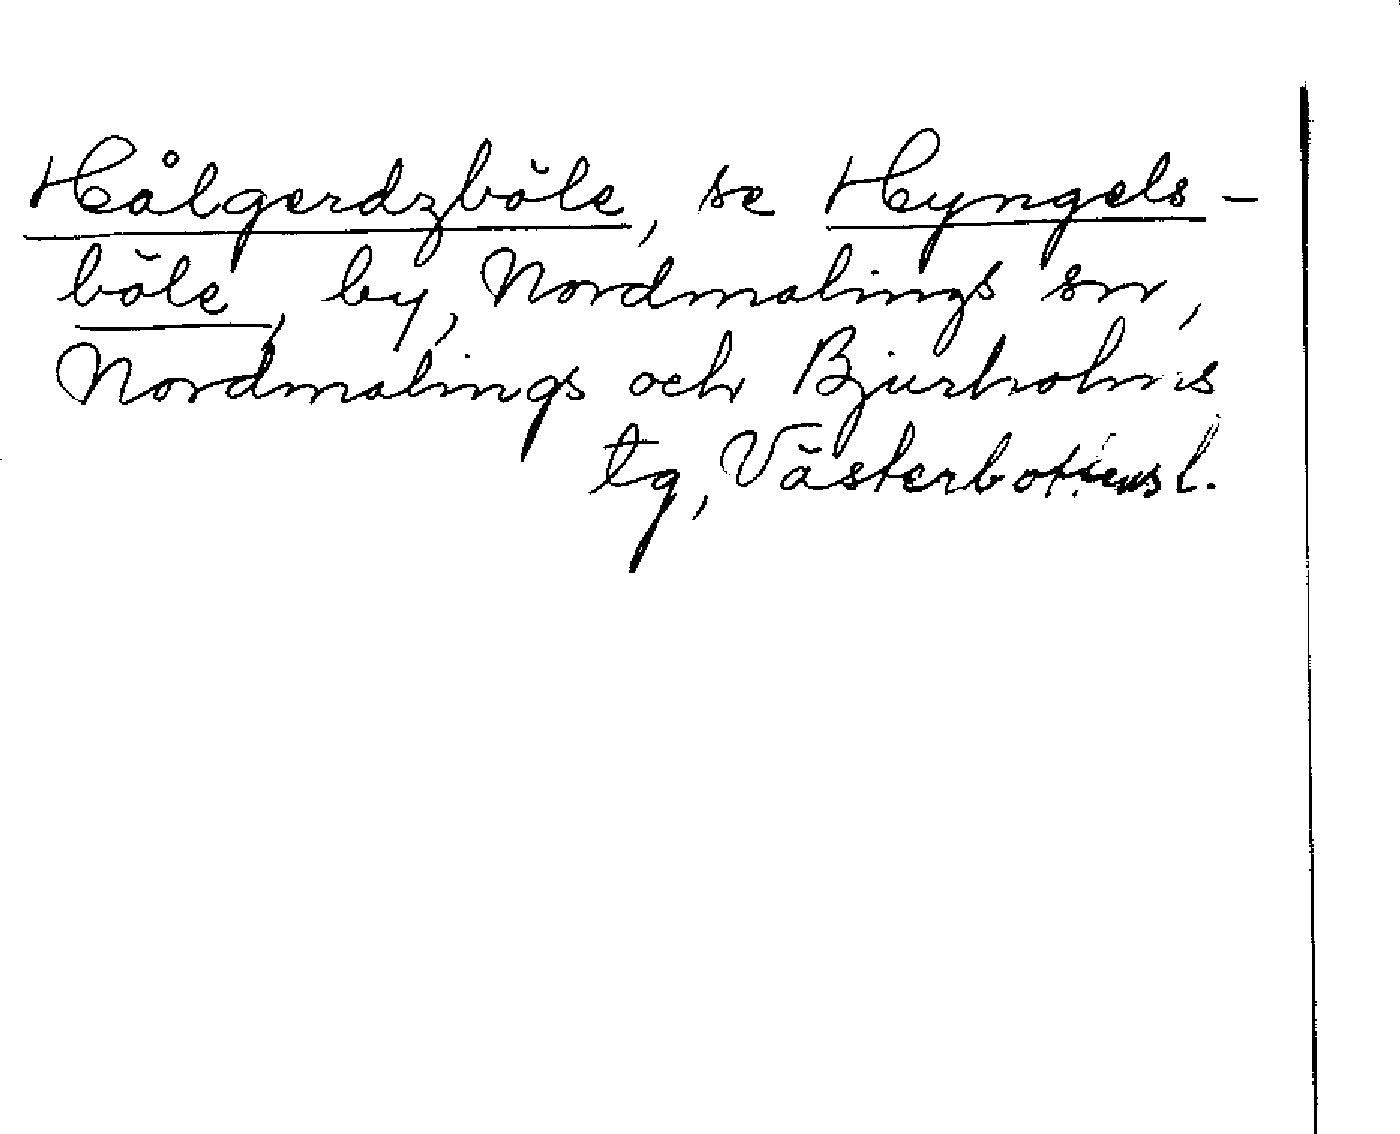 Hålgerdzböle, se Hyngels-
böle, by, Nordmalings sn,
Nordmalings och Bjurholms
tg, Västerbottens l.